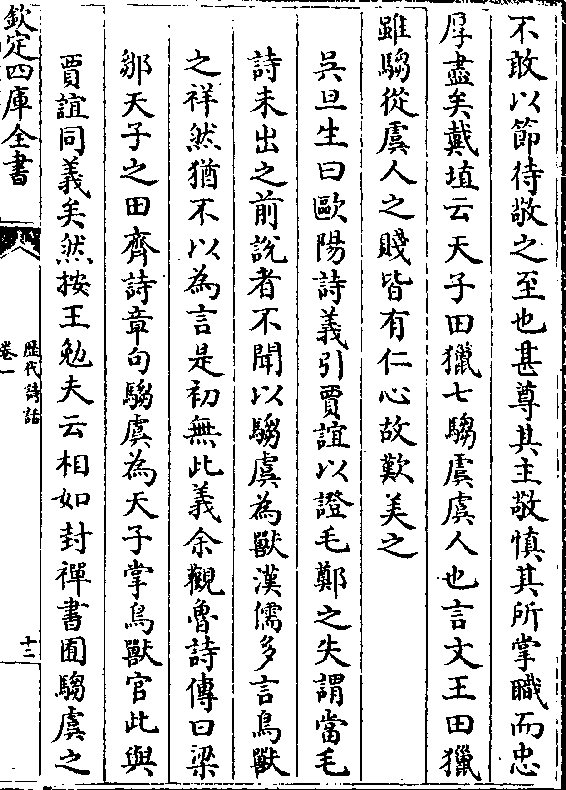 不敢以節待敬之至也甚尊其主敬慎其所掌職而忠
厚盡矣戴埴云天子田獵七騶虞虞人也言文王田獵
雖騶從虞人之賤皆有仁心故歎美之
吳旦生曰歐陽詩義引賈誼以證毛鄭之失謂當毛
詩未出之前說者不聞以騶虞為獸漢儒多言鳥獸
之祥然猶不以為言是初無此義余觀魯詩傳曰梁
鄒天子之田齊詩章句騶虞為天子掌鳥獸官此與
賈誼同義矣然按王勉夫云相如封禪書囿騶虞之
欽定四庫全書
歷代詩話
卷一
十二